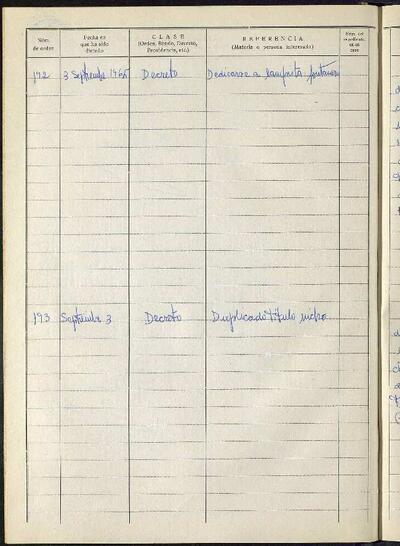 Núm. de orden
Fecha en que ha sido dictada
CLASE
(Orden, Bando, Decreto, Providencia, etc.)
REFERENCIA
(Materia o persona interesada)
Núm. del expediente
192 3 Septiembre 1965 Decreto Dedicarse a
193 Septiembre 3 Decreto Duplicado título nicho